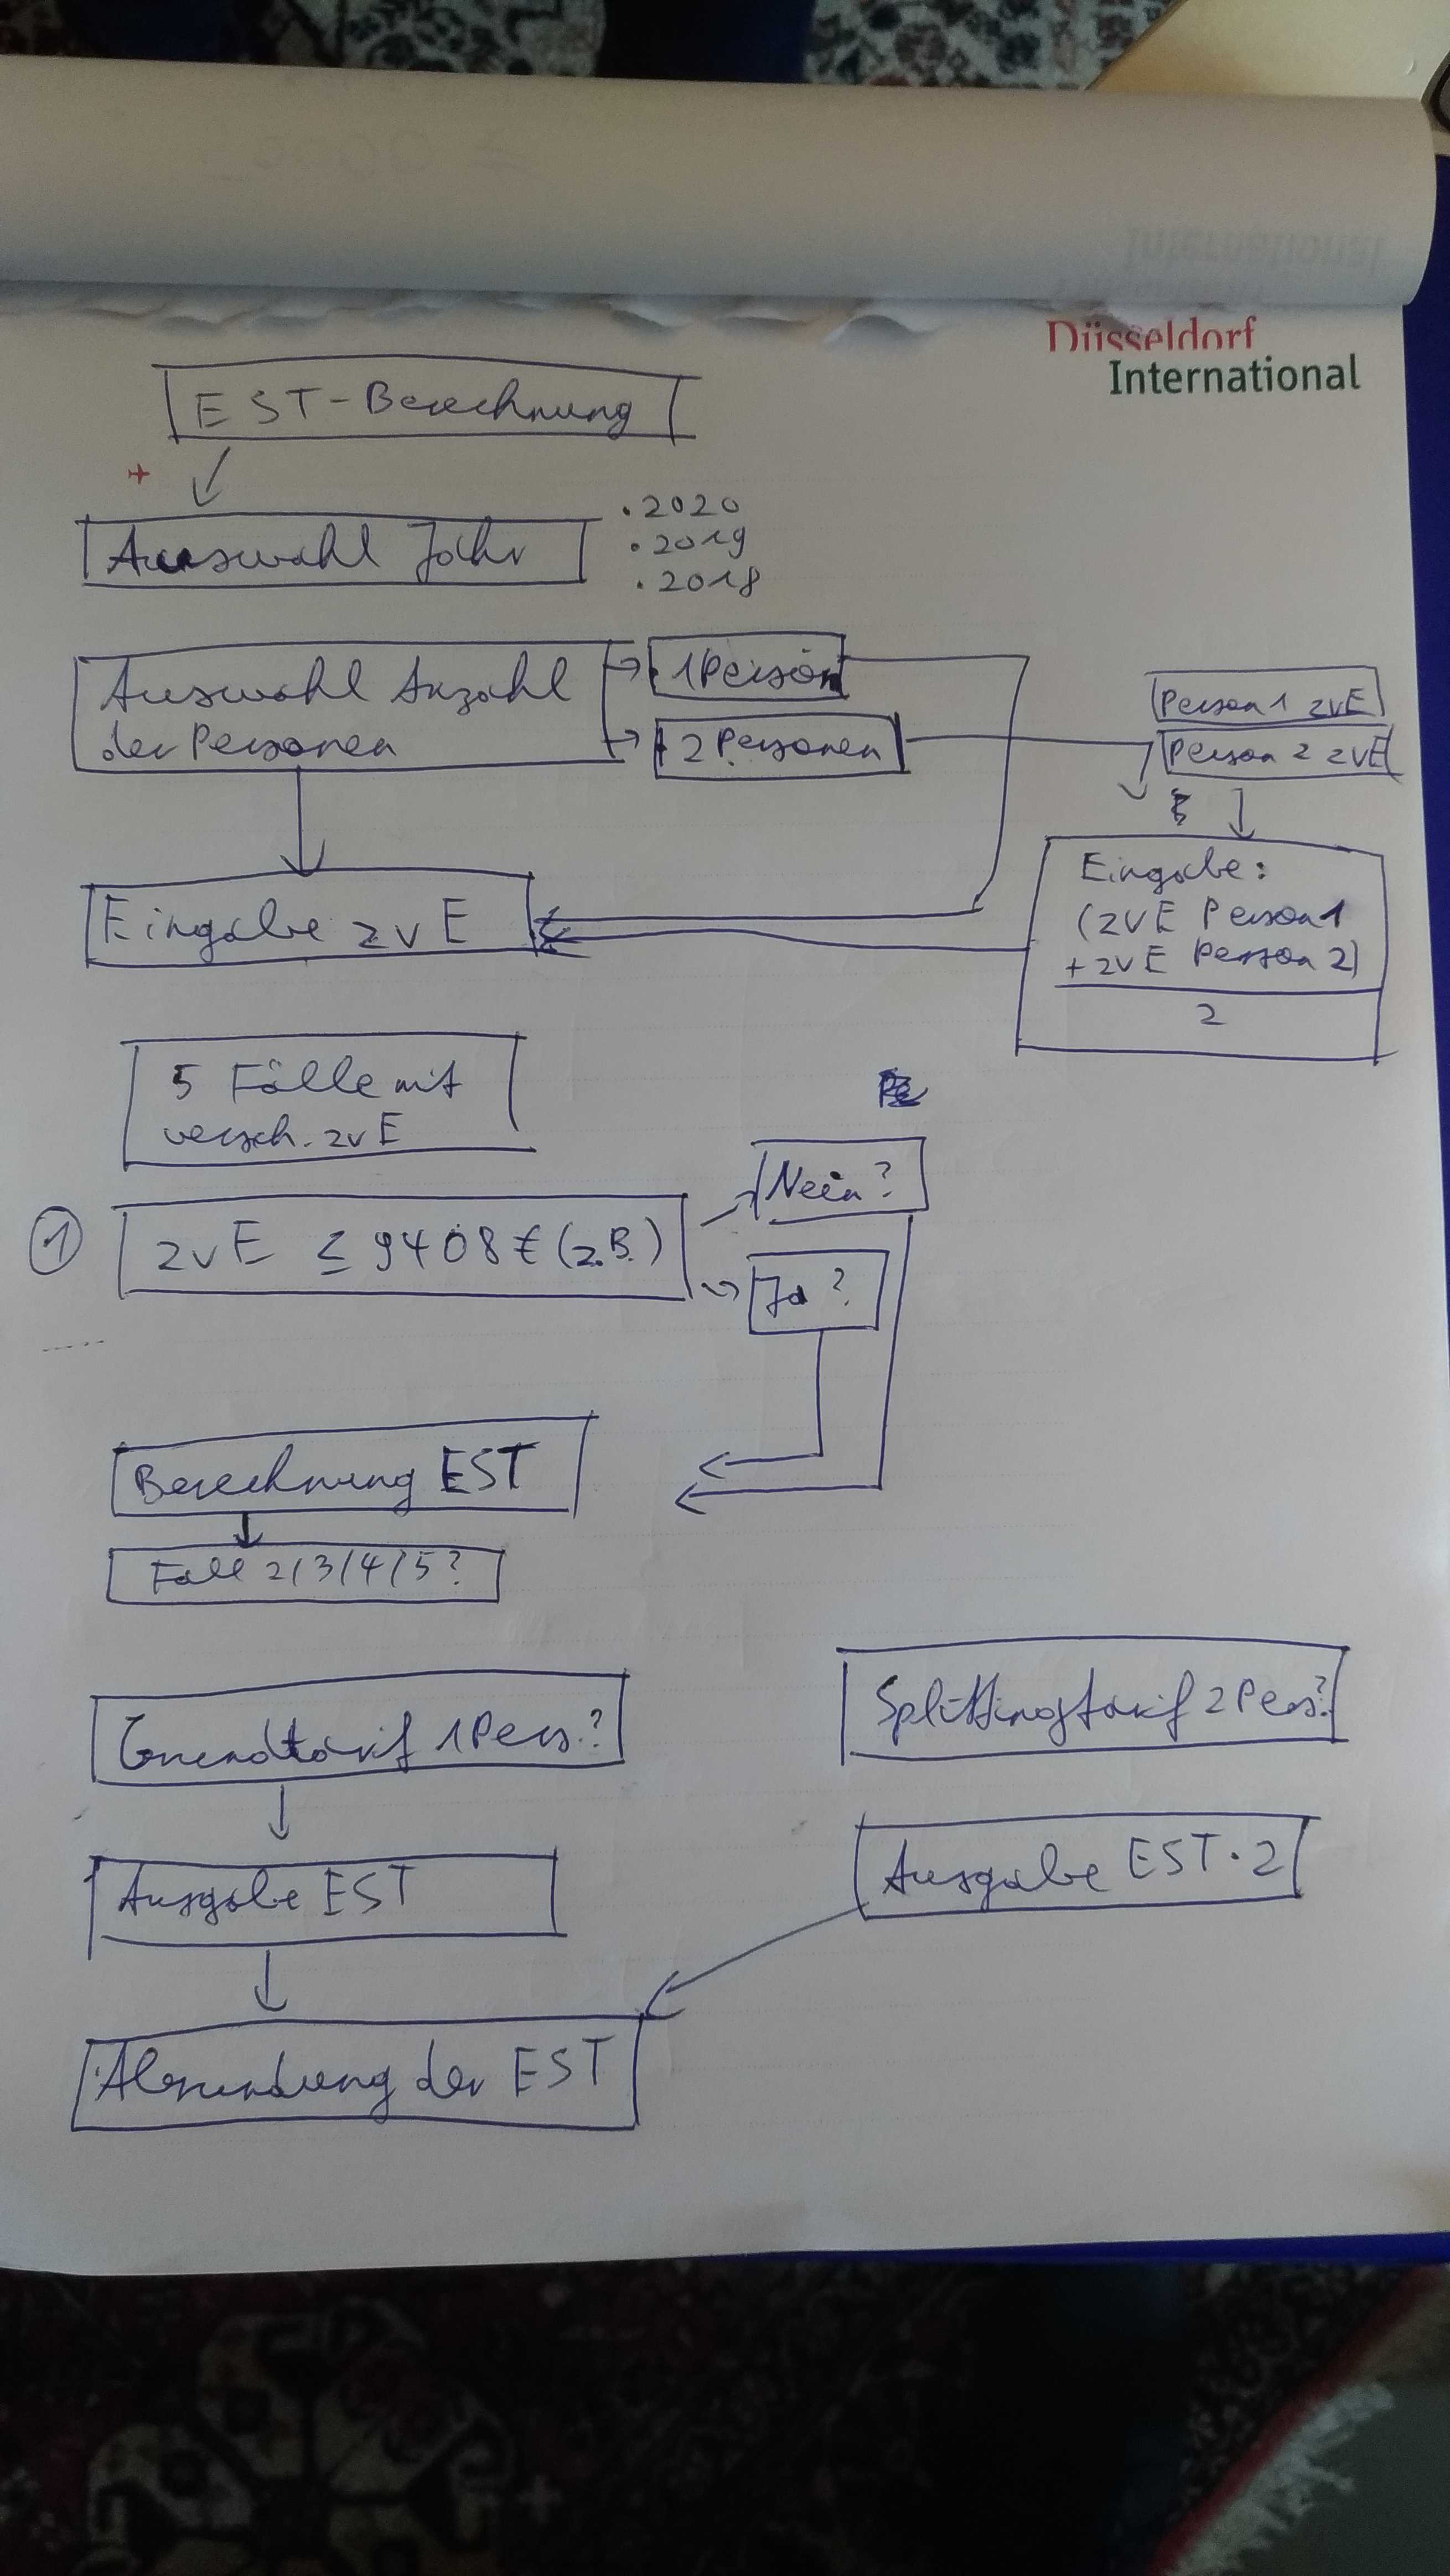 Düsseldorf
International
EST-Berechnung
Auswahl Jahr
. 2020
. 2019
. 2018
Auswahl Anzahl
der Personen
1 Person
2 Personen
Person 1 zvE
Person 2 zvE
Eingabe zvE
Eingabe:
(zvE Person 1
+ zvE Person 2)
2
5 Fälle mit
versch. zvE
1
zvE ≤ 9408 € (z.B.)
Nein?
Ja?
Berechnung EST
Fall 2/3/4/5?
Grundtarif 1 Pers.?
Splittingtarif 2 Pers.?
Ausgabe EST
Ausgabe EST · 2
Abrundung der EST